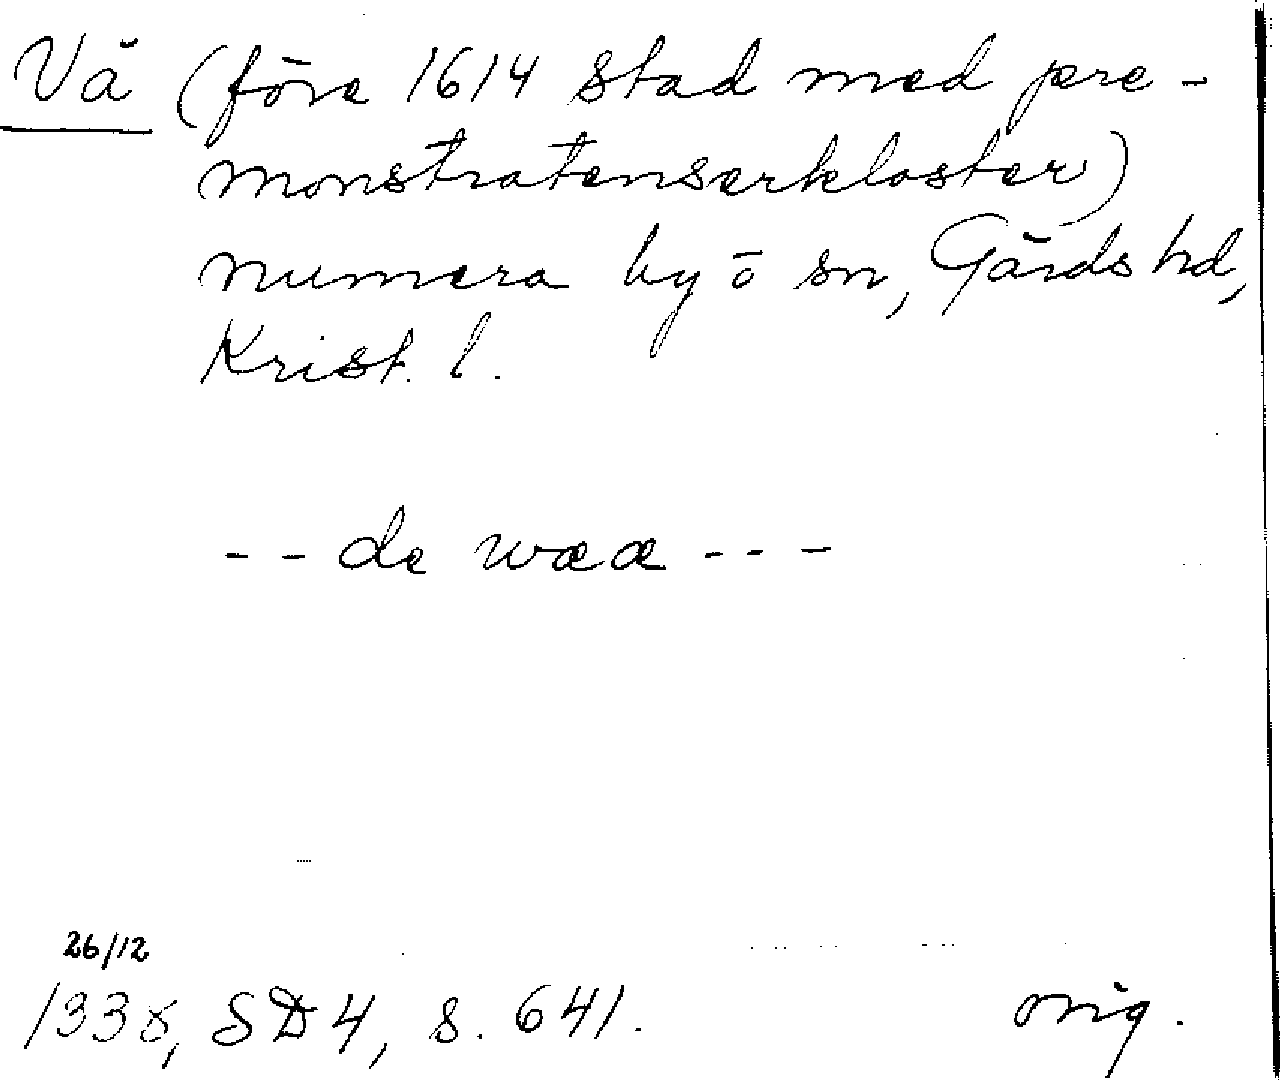 Vä (före 1614 stad med pre-
monstratenserkloster)
numera by o sn, Gärds hd,
Krist. l.
-- de wææ ---
26/12
1338, SD4, s. 641.
orig.